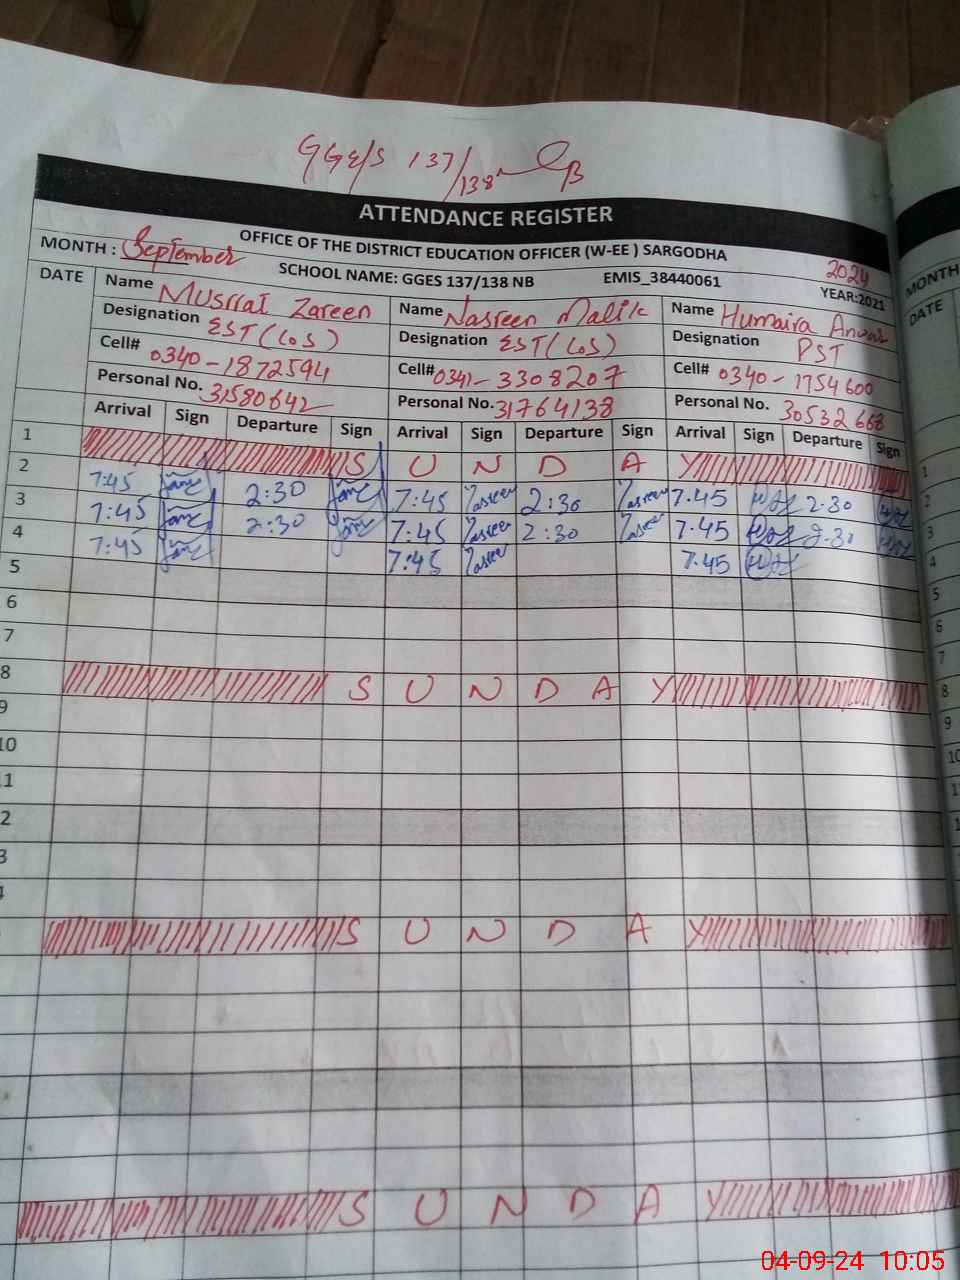 GGE/S 137/138 NB
ATTENDANCE REGISTER
OFFICE OF THE DISTRICT EDUCATION OFFICER (W-EE ) SARGODHA
MONTH : September
SCHOOL NAME: GGES 137/138 NB
EMIS_38440061
2024
YEAR:2021
MONTH
DATE
Name Musrrat Zareen
Name Nasreen Malik
Name Humaira Anwar
DATE
Designation EST(LOS)
Designation EST(LOS)
Designation PST
Cell# 0340-1872594
Cell# 0341-3308207
Cell# 0340-1754600
Personal No. 31580642
Personal No. 31764138
Personal No. 30532668
Arrival Sign Departure Sign Arrival Sign Departure Sign Arrival Sign Departure Sign
1 S U N D A Y 1
2 7:45 2:30 7:45 Nasreen 2:30 Nasreen 7.45 2.30 2
3 7:45 2:30 7:45 Nasreen 2:30 Nasreen 7.45 2.30 3
4 7:45 7:45 Nasreen 7.45 4
5 5
6 6
7 7
8 S U N D A Y 8
9 9
10 10
11
2
3
S U N D A Y
S U N D A Y
04-09-24 10:05